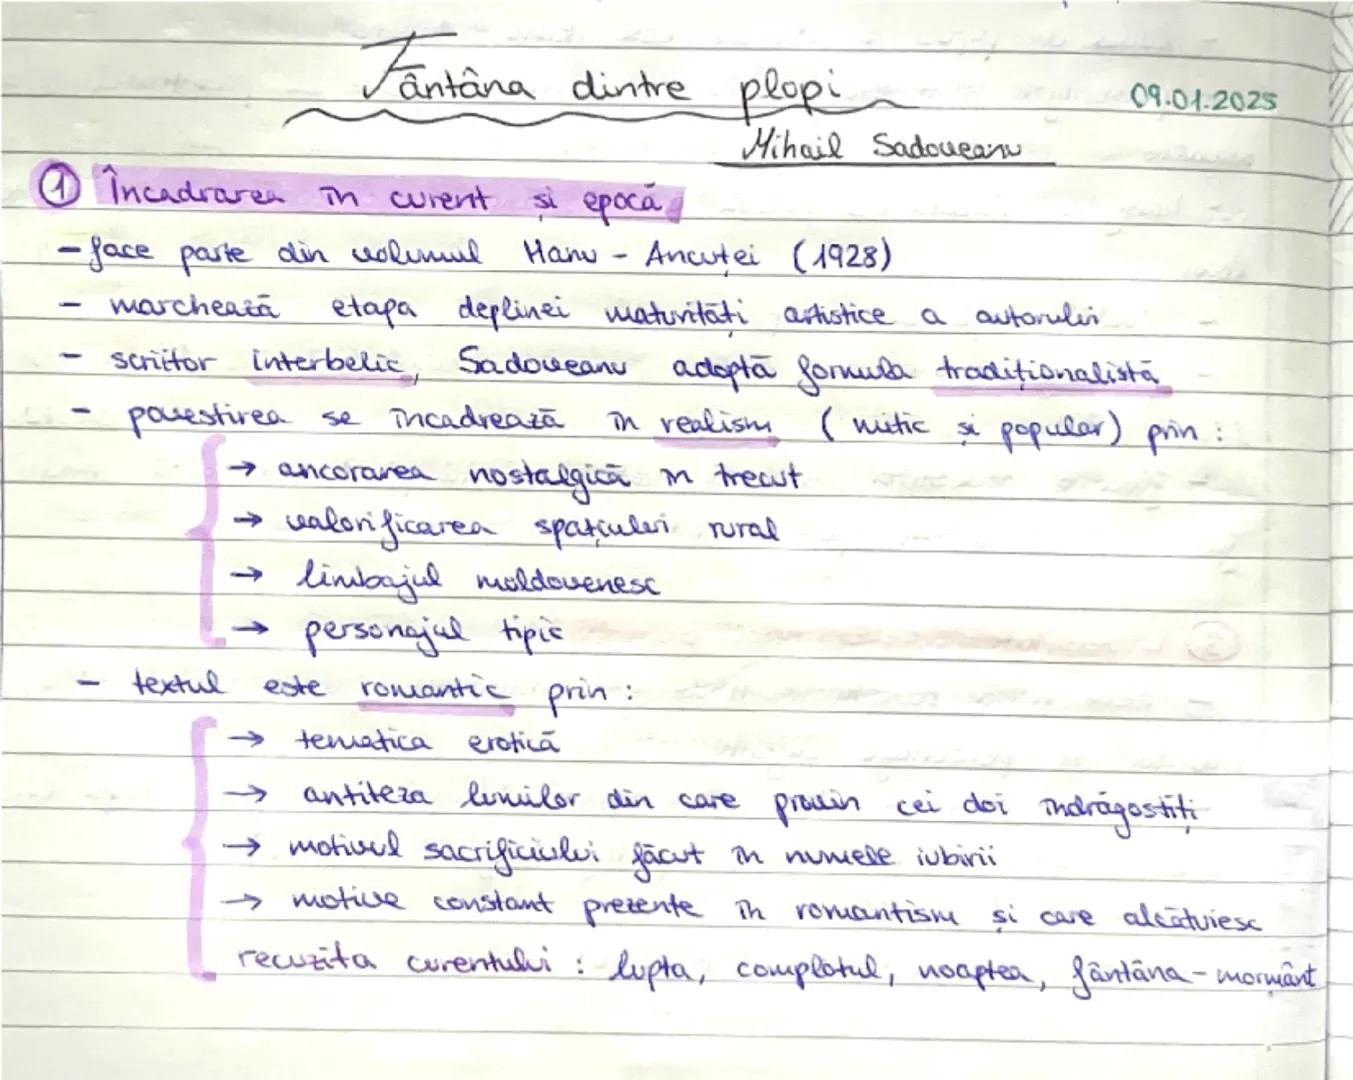 Fântâna dintre plopi
09.01.2025
Mihail Sadoveanu
① Încadrarea în curent și epocă
- face parte din volumul Hanu - Ancuței (1928)
- marchează etapa deplinei maturități artistice a autorului
- scriitor interbelic, Sadoveanu adoptă formula tradiționalistă
- povestirea se încadrează în realism (mitic și popular) prin :
→ ancorarea nostalgică în trecut
→ valorificarea spațiului rural
→ limbajul moldovenesc
→ personajul tipic
- textul este romantic prin :
→ tematica erotică
→ antiteza lumilor din care provin cei doi îndrăgostiți
→ motivul sacrificiului făcut în numele iubirii
→ motive constant prezente în romantism și care alcătuiesc
recuzita curentului : lupta, complotul, noaptea, fântâna - mormânt